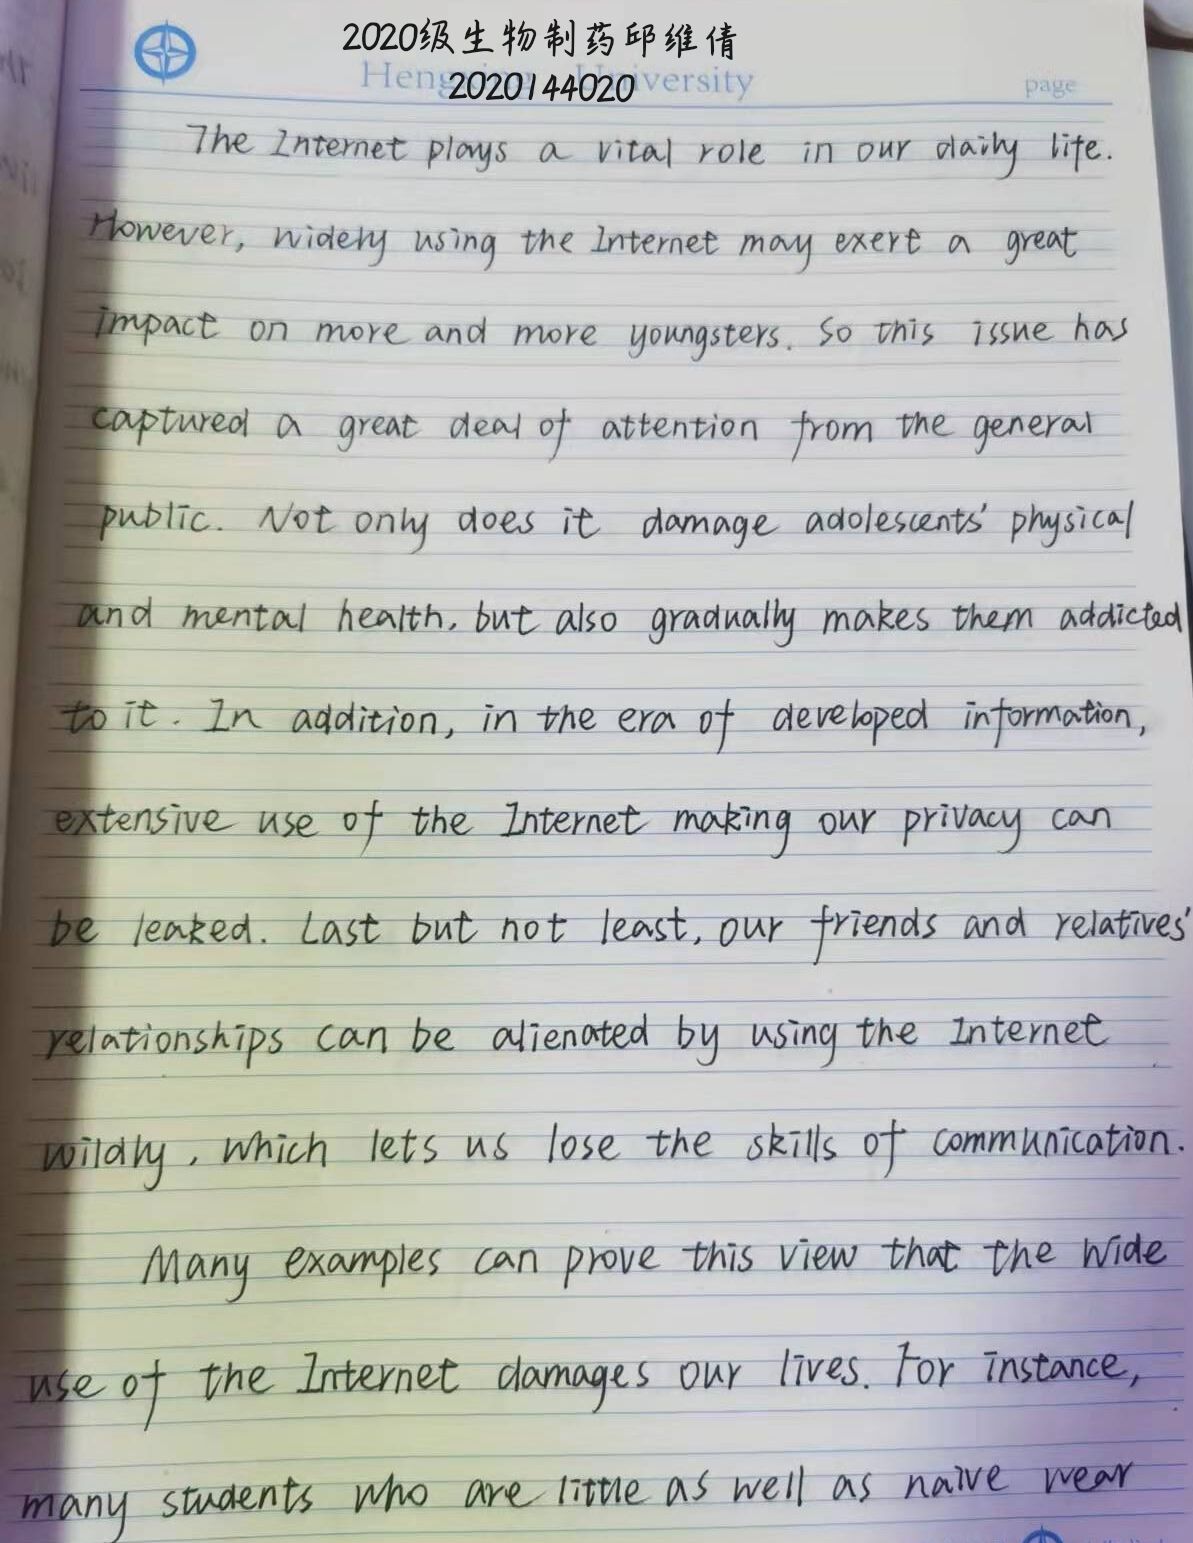 2020级生物制药邱维倩
2020144020
University
page
The Internet plays a vital role in our daily life.
However, widely using the Internet may exert a great
impact on more and more youngsters. So this issue has
captured a great deal of attention from the general
public. Not only does it damage adolescents' physical
and mental health, but also gradually makes them addicted
to it. In addition, in the era of developed information,
extensive use of the Internet making our privacy can
be leaked. Last but not least, our friends and relatives'
relationships can be alienated by using the Internet
wildly, which lets us lose the skills of communication.
Many examples can prove this view that the wide
use of the Internet damages our lives. For instance,
many students who are little as well as naive wear